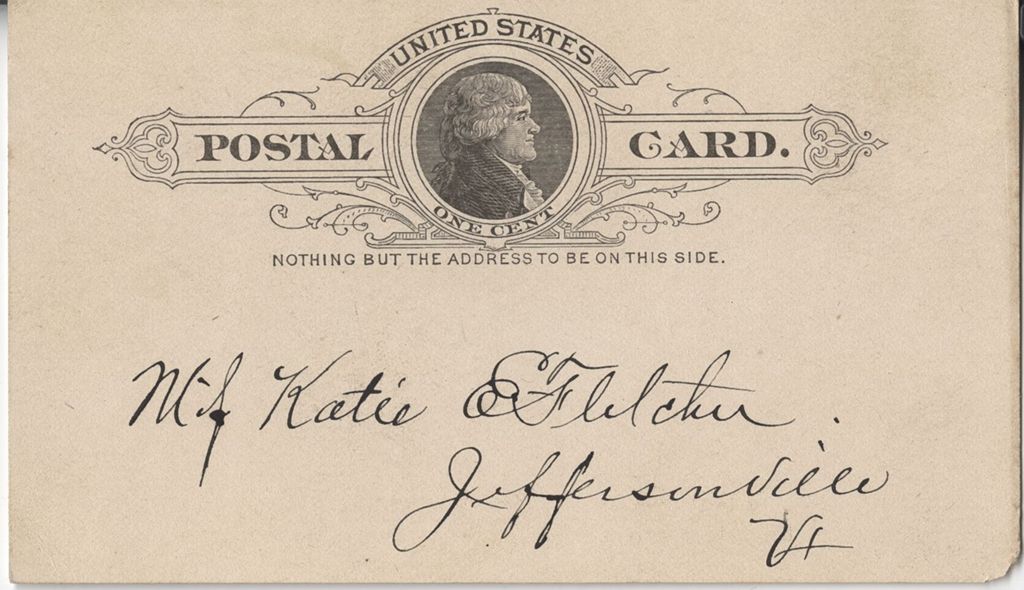 UNITED STATES
POSTAL CARD.
ONE CENT
NOTHING BUT THE ADDRESS TO BE ON THIS SIDE.
Miss Katie E Fletcher.
Jeffersonville
Vt